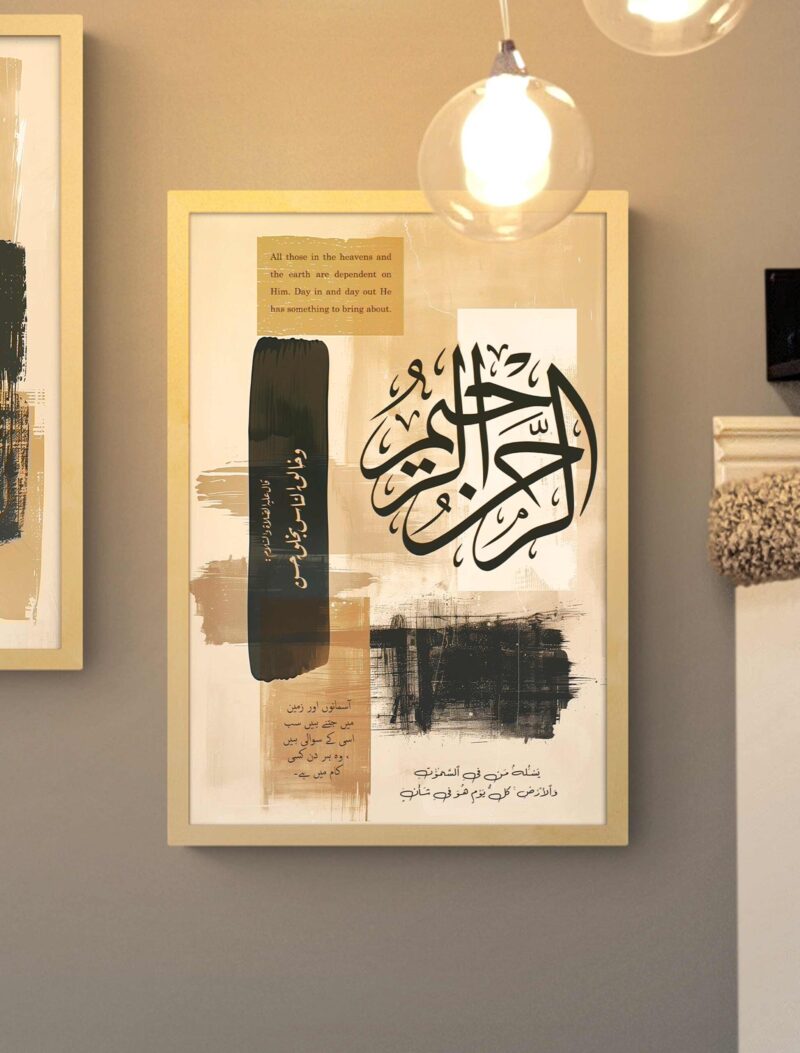 All those in the heavens and
the earth are dependent on
Him. Day in and day out He
has something to bring about.
الرحمن الرحيم
قال عليه الصلاة والسلام :
وخالق الناس بخلق حسن
آسمانوں اور زمین
میں جتنے ہیں سب
اسی کے سوالی ہیں
، وہ ہر دن کسی
کام میں ہے۔
يَسْـَٔلُهُۥ مَن فِي ٱلسَّمَٰوَٰتِ
وَٱلْأَرْضِ ۚ كُلَّ يَوْمٍ هُوَ فِي شَأْنٍ